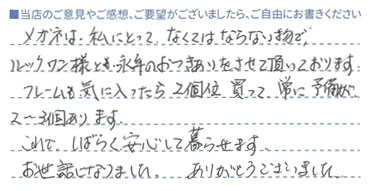 ■当店のご意見やご感想、ご要望がございましたら、ご自由にお書きください
メガネは、私にとって、なくてはならない物で、
ルックワン様とも永年のおつきあいをさせて頂いております。
フレームも気に入ったら2個位買って、常に予備が、
2〜3個あります。
これで、しばらく安心して暮らせます。
お世話になりました。 ありがとうございました。